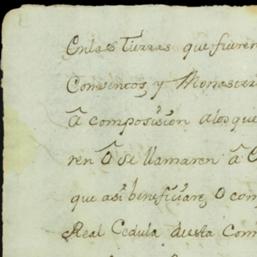 En las Tierras que fueren
Combentos, y Monaster
â composision alos que
ren Ô se llamaren â C
que asi benefisiare, O com
Real Cedula desta Com